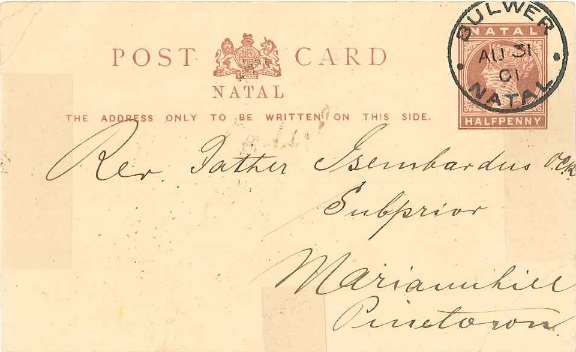 POST CARD
NATAL
THE ADDRESS ONLY TO BE WRITTEN ON THIS SIDE.
BULWER
AU 31
01
NATAL
NATAL
HALFPENNY
Rev. Father Isembardus
Subprior
Mariannhill
Pinetown.